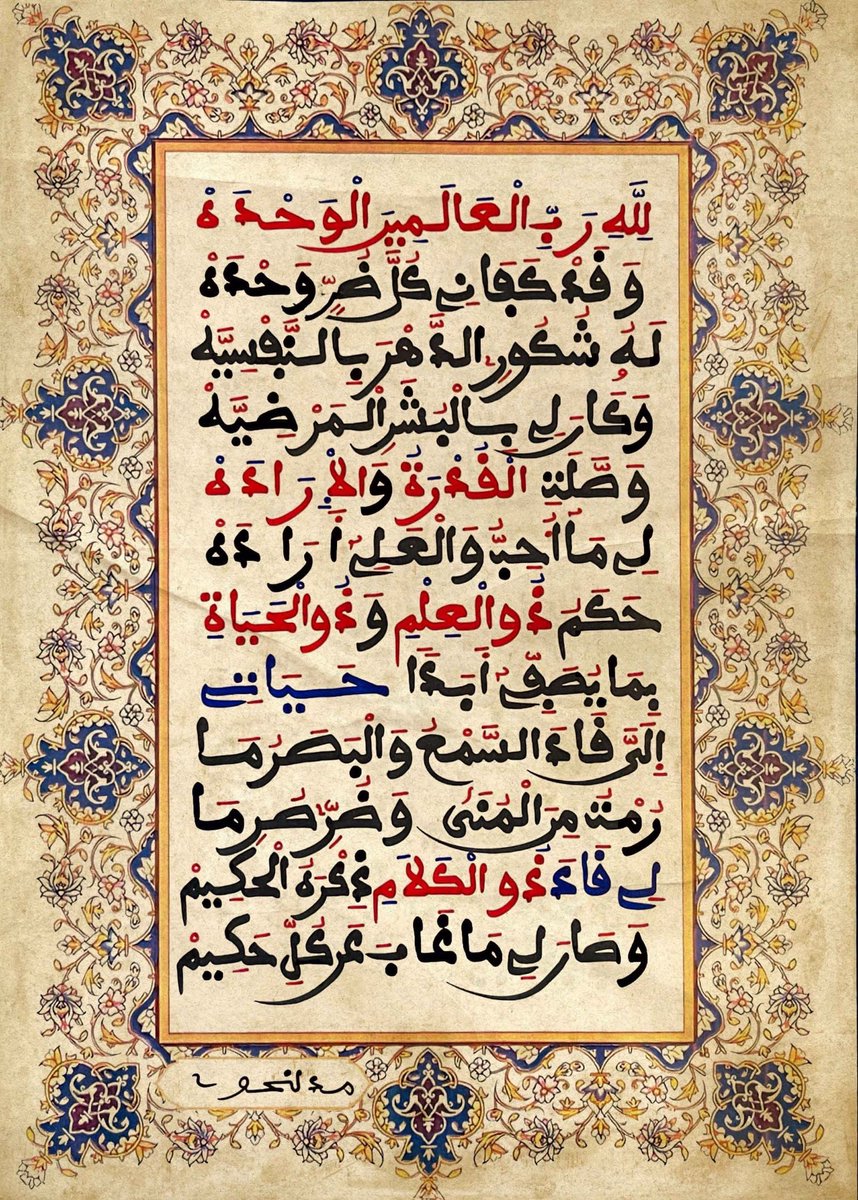 لِلَّهِ رَبِّ الْعَالَمِينَ الْوَحْدَهْ
وَقَدْ كَفَانِي كُلَّ ضُرٍّ وَحْدَهْ
لَهُ شُكُورِ الدَّهْرَ بِالنَّفْسِيَّهْ
وَكَانَ لِي بِالْبَشَرِ الْمَرْضِيَّهْ
وَصَّلَتِ الْقُدْرَةُ وَالْإِرَادَهْ
لِي مَا أُحِبُّ وَالْعَلِيْ أَرَادَهْ
حَكَمَ ذُو الْعِلْمِ وَذُو الْحَيَاةِ
بِمَا يُصَفِّي أَبَدًا حَيَاتِي
إِلَيَّ قَادَ السَّمْعُ وَالْبَصَرُ مَا
رُمْتُ مِنَ الْمُنَى وَضُرِّ صَرَمَا
لِي قَادَ ذُو الْكَلَامِ ذِكْرَهُ الْحَكِيمْ
وَصَانَ لِي مَا غَابَ عَن كُلِّ حَكِيمْ